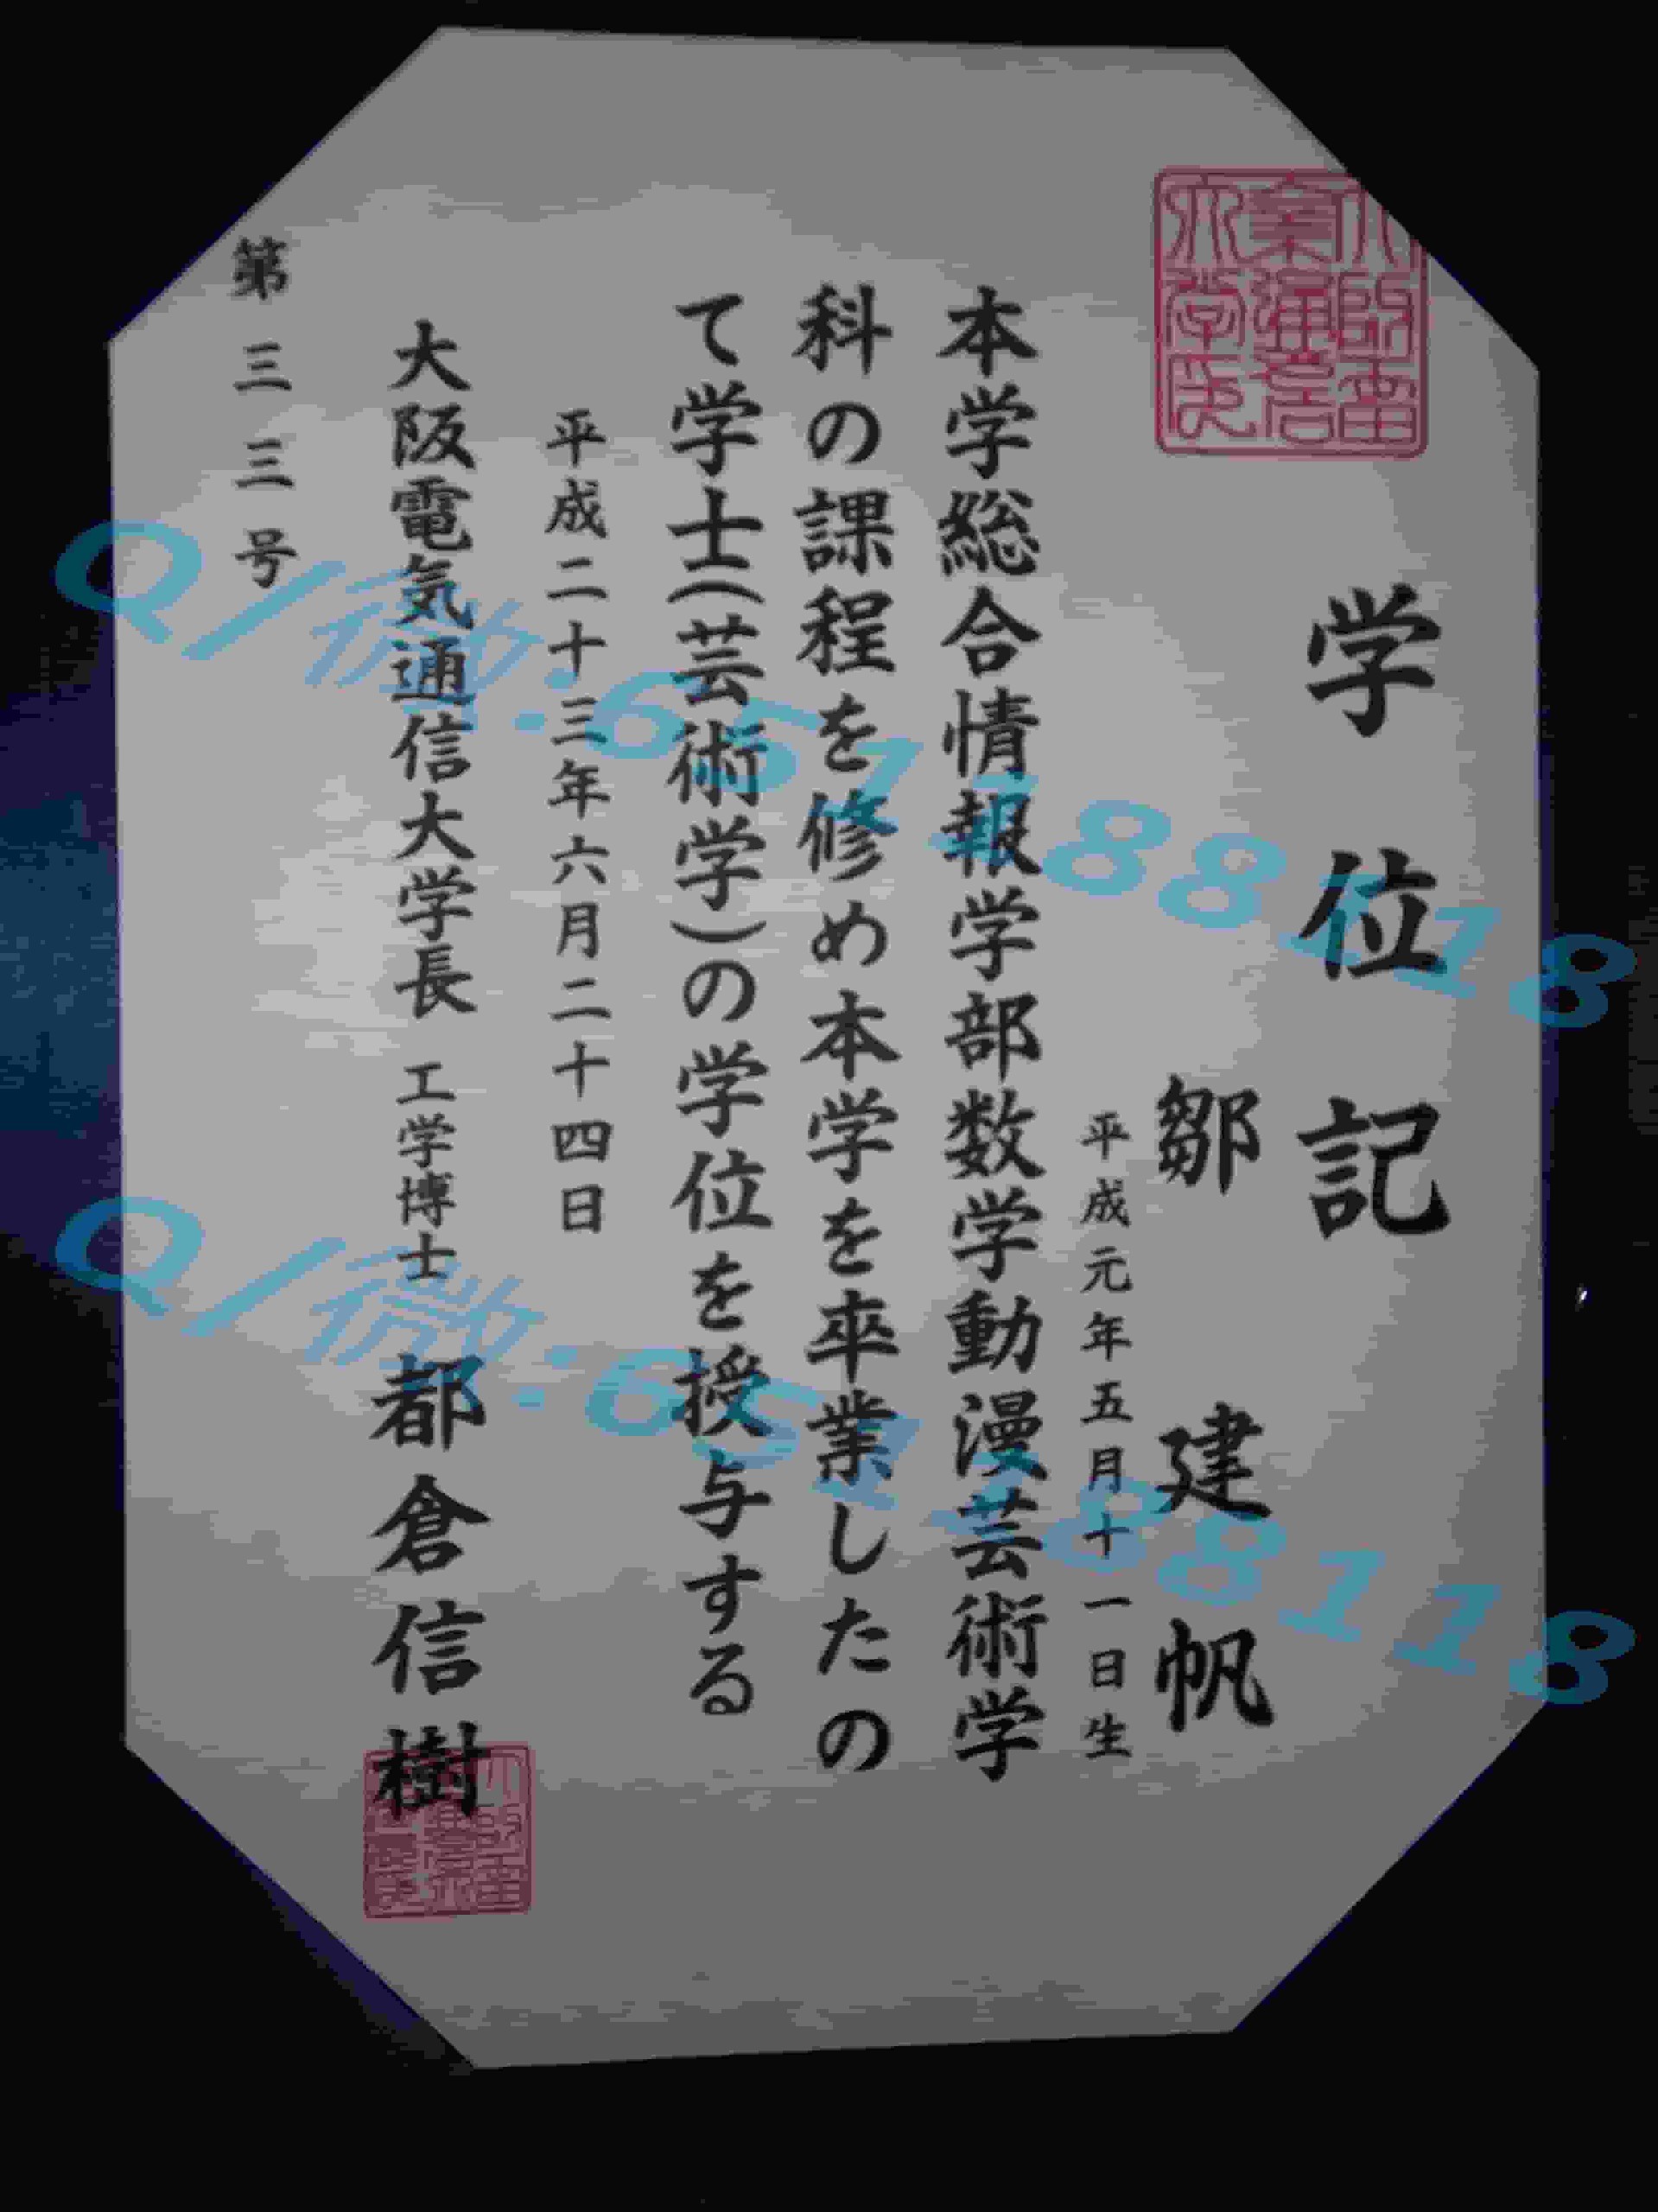 学位記
鄒建帆
平成元年五月十一日生
本学総合情報学部数学動漫芸術学
科の課程を修め本学を卒業したの
て学士(芸術学)の学位を授与する
平成二十三年六月二十四日
大阪電気通信大学長 工学博士 都倉信樹
第三三号
Q/微:651188118
Q/微:651188118